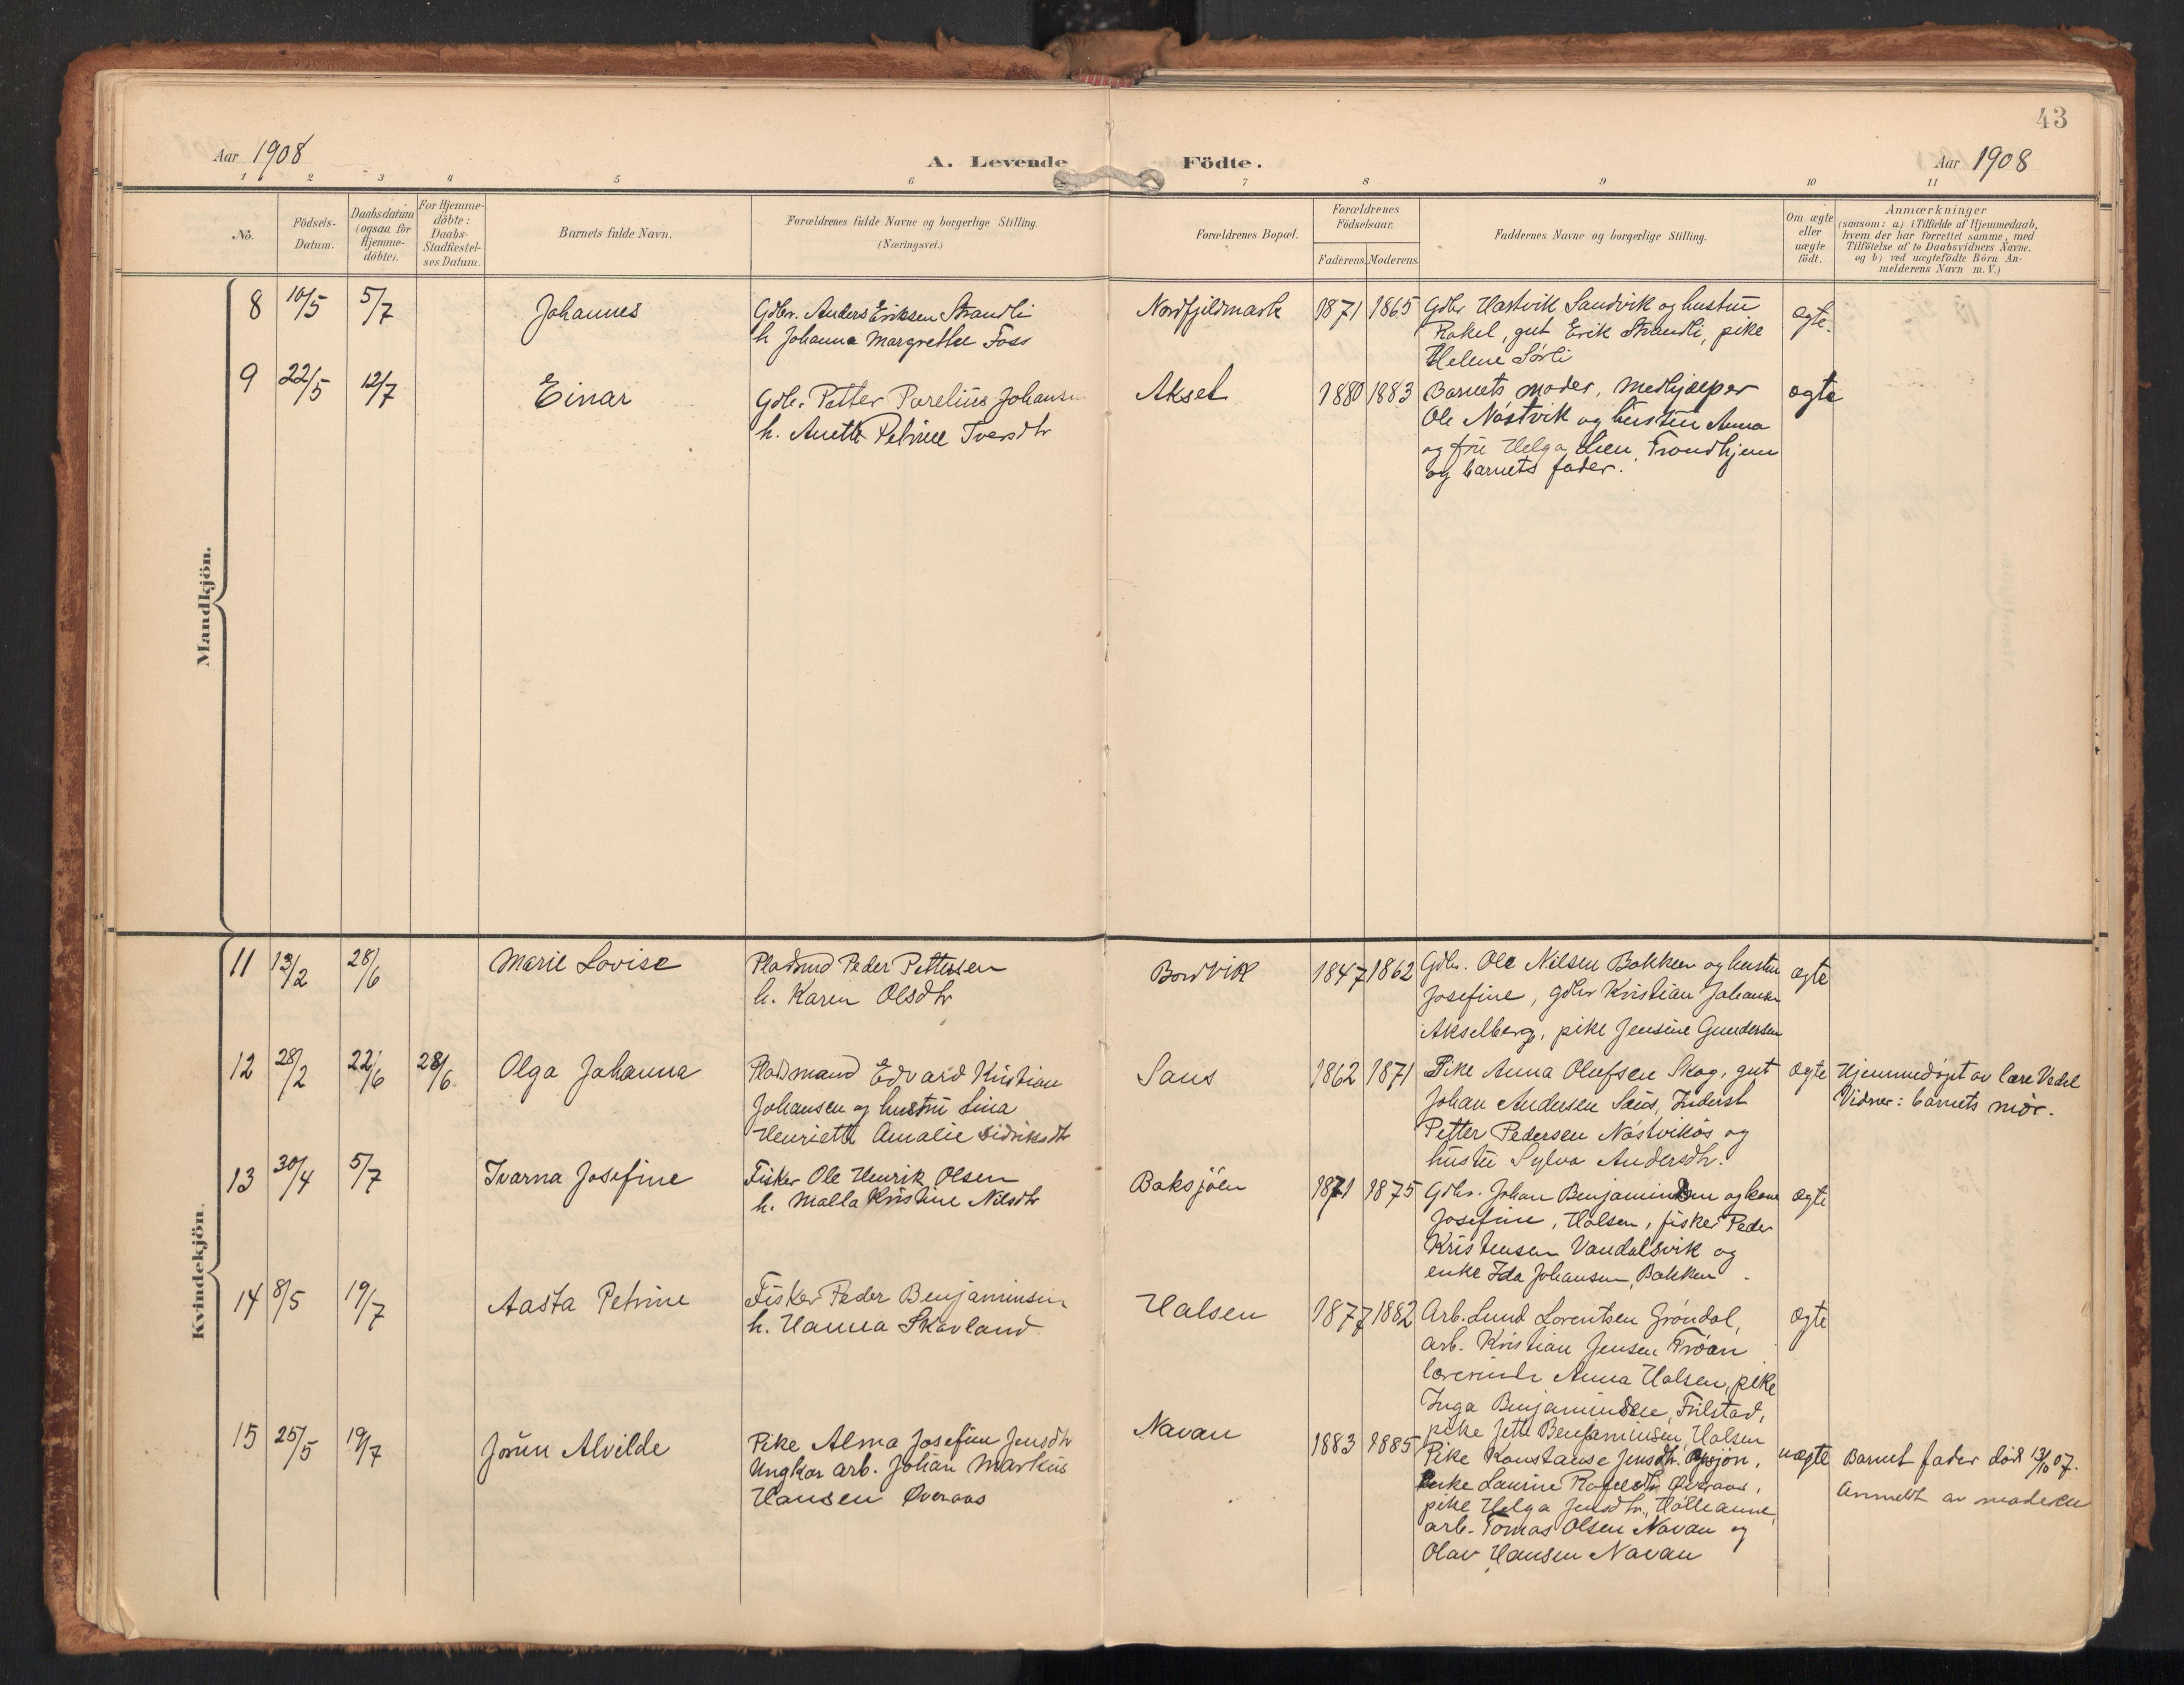 43
Aar 1908
A. Levende Födte.
Aar 1908
1 2 3 4 5 6 7 8 9 10 11
No.
Födsels-
Datum.
Daabsdatum
(ogsaa for
Hjemme-
döbte).
For Hjemme-
döbte:
Daabs-
Stadfæstel-
ses Datum.
Barnets fulde Navn.
Forældrenes fulde Navne og borgerlige Stilling.
(Næringsvei.)
Forældrenes Bopæl.
Forældrenes
Födselsaar.
Faderens. Moderens.
Faddernes Navne og borgerlige Stilling.
Om ægte
eller
uægte
födt.
Anmærkninger
(saasom: a) i Tilfælde af Hjemmedaab,
hvem der har forrettet samme, med
Tilföielse af to Daabsvidners Navne.
og b) ved uægtefödte Börn An-
melderens Navn m. V.)
Mandkjön.
8 10/5 5/7 Johannes
Gdbr. Anders Eriksen Strandli
h. Johanna Margrethe Foss
Nordfjeldmark 1871 1865
Gdbr Hartvik Sandvik og hustru
Rakel, gut Erik Strandli, pike
Helene Sørli
ægte.
9 22/5 12/7 Einar
Gdbr. Petter Parelius Johansen
h. Anette Petrine Iversdtr
Aksel 1880 1883
Barnets moder, medhjælper
Ole Nøstvik og hustru Anna
og fru Helga Lien, Trondhjem
og barnets fader.
ægte
Kvindekjön.
11 13/2 28/6 Marie Lovise
Pladsmd Peder Pettersen
h. Karen Olsdtr
Bordvik 1847 1862
Gdbr. Ole Nilsen Bakken og hustru
Josefine, gdbr Kristian Johansen
Akselberg, pike Jensine Gundersen
ægte
12 28/2 22/6 28/6 Olga Johanna
Pladsmand Edvard Kristian
Johansen og hustru Lina
Henriette Amalie Didriksdtr
Saus 1862 1871
Pike Anna Olufsen Skog, gut
Johan Andersen Saus, Inderst
Petter Pedersen Nøstvikøs og
hustru Sylva Andersdtr.
ægte
Hjemmedøpt av lære Vedel
Vidner: barnets mor.
13 30/4 5/7 Ivarna Josefine
Fisker Ole Henrik Olsen
h. Malla Kristine Nilsdtr
Baksjøen 1871 1875
Gdbr. Johan Benjaminsen og kone
Josefine, Halsen, fisker Peder
Kristensen Vandalsvik og
enke Ida Johansen, Bakken
ægte
14 8/5 19/7 Aasta Petrine
Fisker Peder Benjaminsen
h. Hanna Skavland
Halsen 1877 1882
Arb. Lund Lorentsen Grøndal,
arb. Kristian Jensen Frøan
lærerinde Anna Halsen, pike
Inga Benjaminsen,
pike Jette Benjaminsen, Halsen
ægte
15 25/5 19/7 Jorun Alvilde
Pike Alma Josefine Jensdtr
Ungkar arb. Johan Markus
Hansen Øveraas
Navan 1883 1885
Pike Konstanse Jensdtr.
enke Laurine Øveraas,
pike Helga Jensdtr,
arb. Tomas Olsen Navan og
Olav Hansen Navan
uægte
Barnet fader død 13/10 07.
Anmeldt av moderen